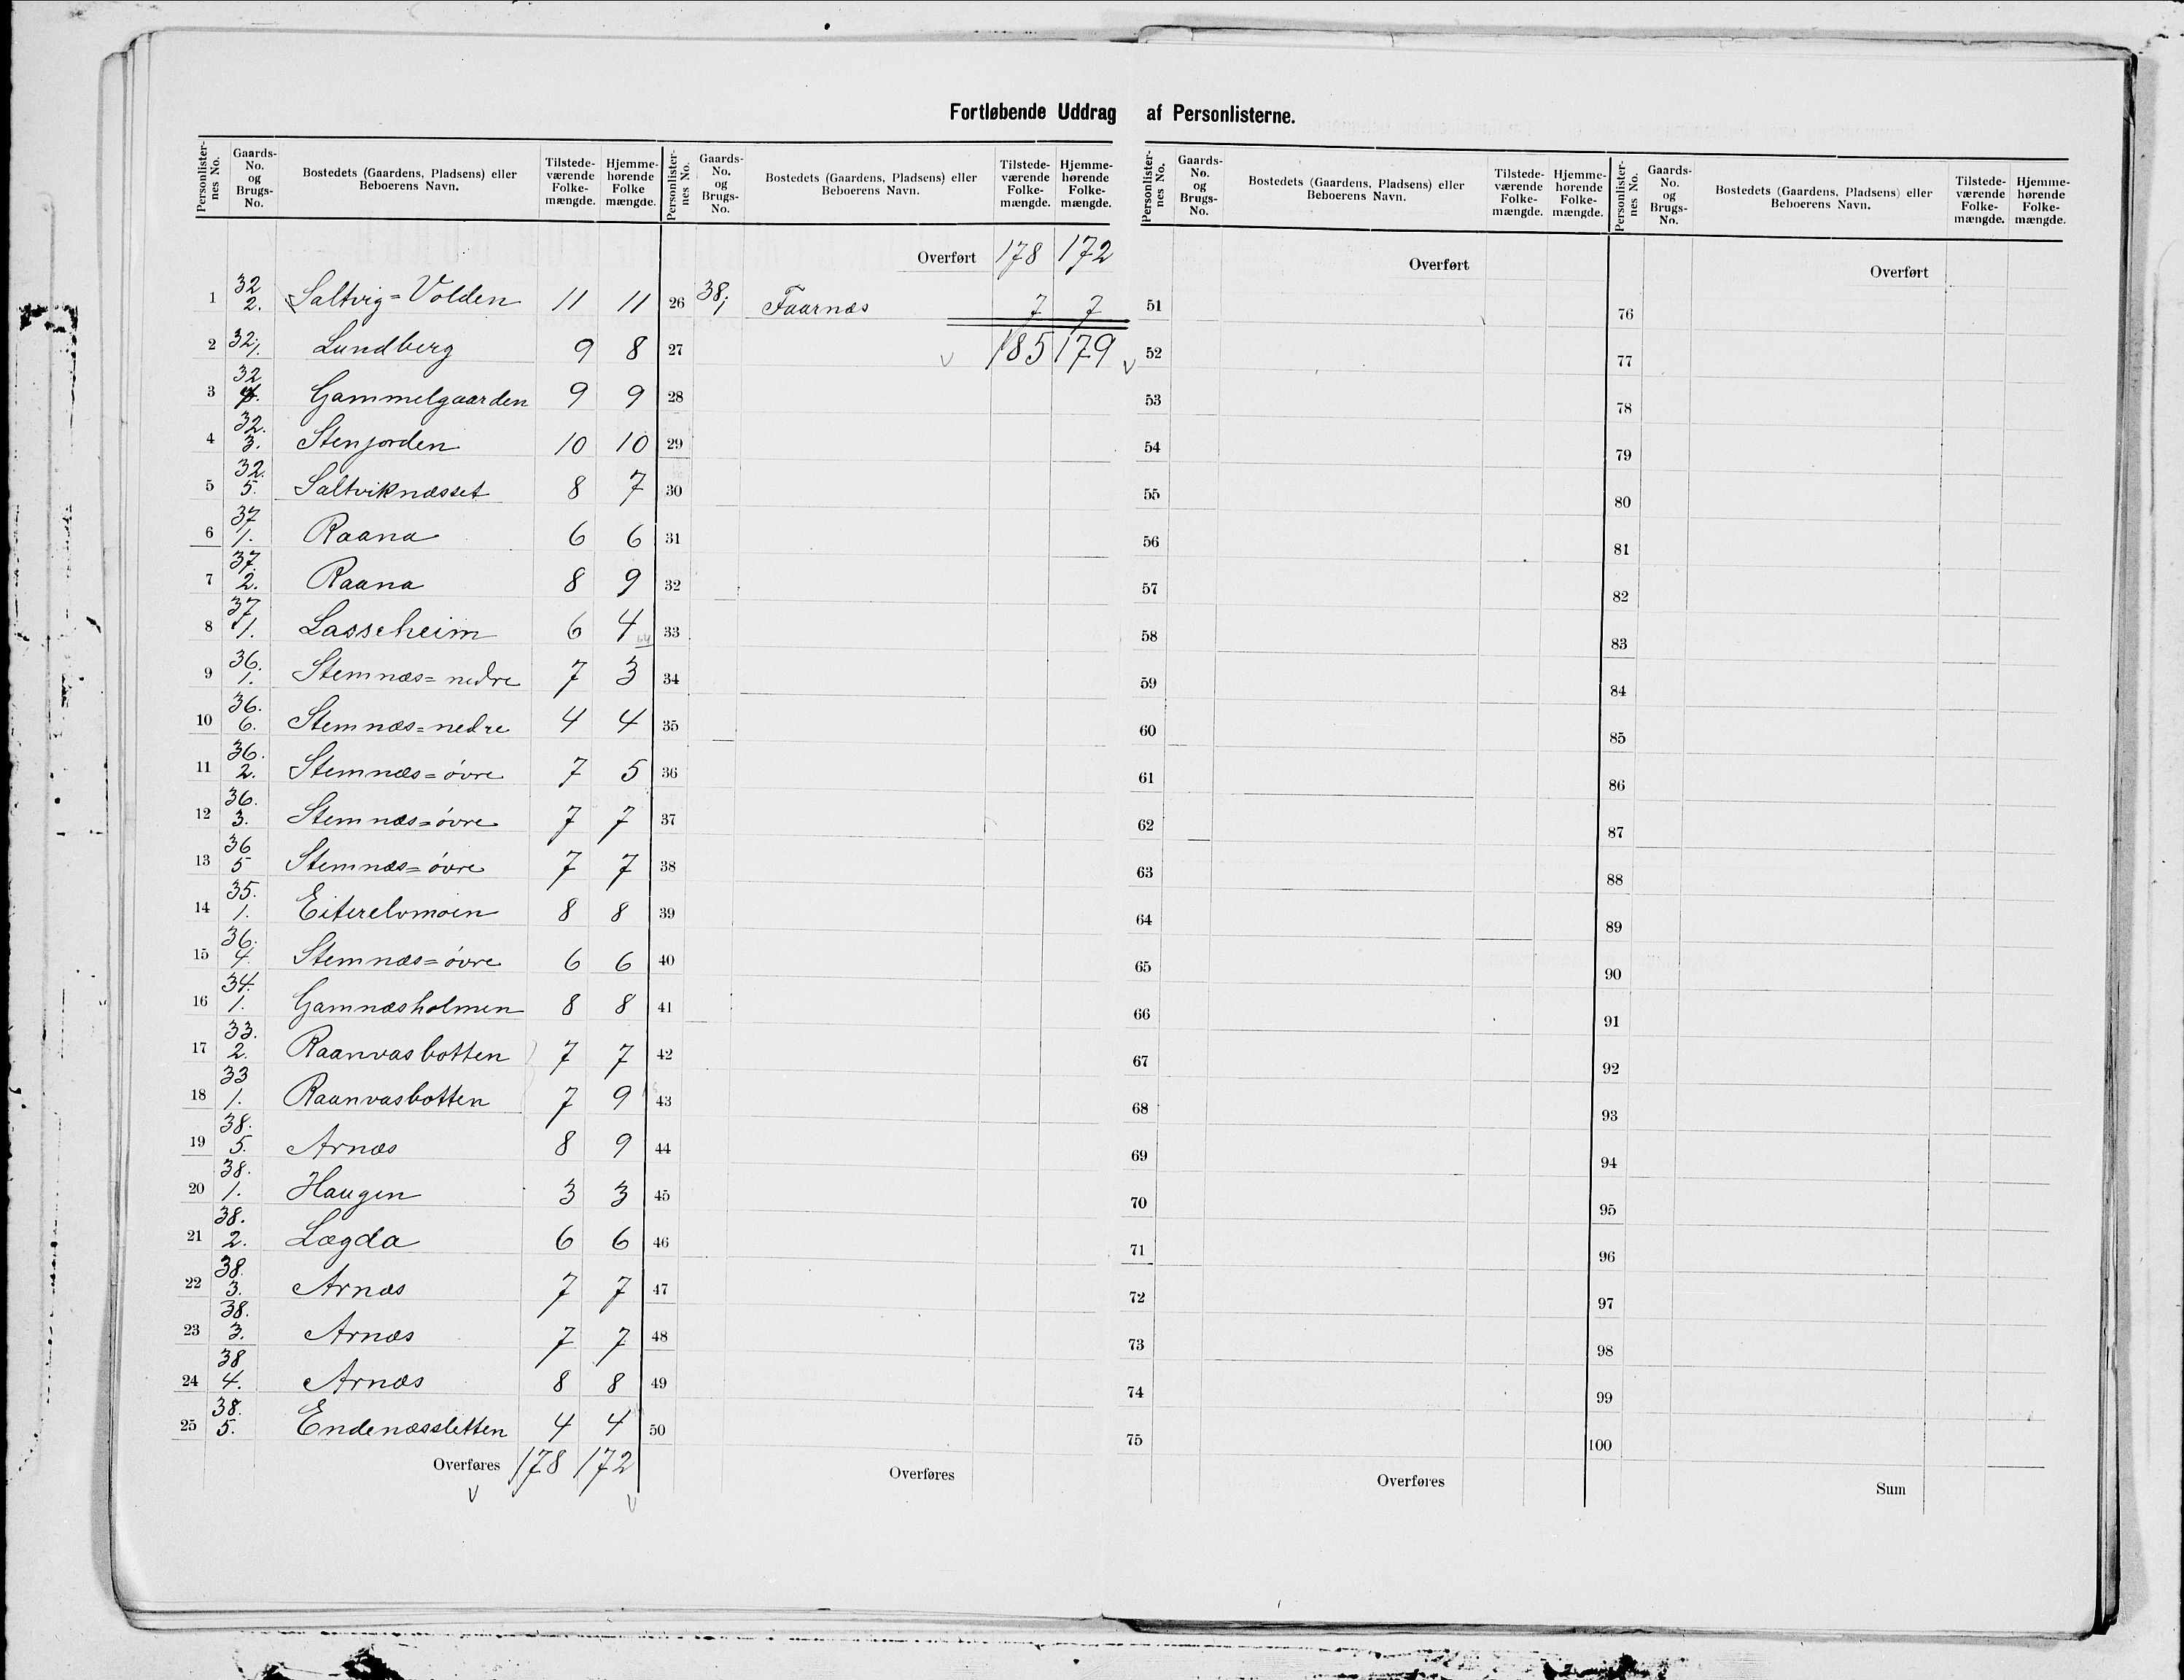 Fortløbende Uddrag af Personlisterne.
Personlister-nes No. | Gaards-No. og Brugs-No. | Bostedets (Gaardens, Pladsens) eller Beboerens Navn. | Tilstede-værende Folke-mængde. | Hjemme-hørende Folke mængde.
1 | 32 2. | Saltvig=Volden | 11 | 11
2 | 32, 1. | Lundberg | 9 | 8
3 | 32 4. | Gammelgaarden | 9 | 9
4 | 32. 3. | Stenjorden | 10 | 10
5 | 32. 5. | Saltviknæsset | 8 | 7
6 | 37 1. | Raana | 6 | 6
7 | 37. 2. | Raana | 8 | 9
8 | 37 1. | Lasseheim | 6 | 4
9 | 36. 1. | Stemnæs=nedre | 7 | 3
10 | 36. 6. | Stemnæs=nedre | 4 | 4
11 | 36. 2. | Stemnæs=óvre | 7 | 5
12 | 36. 3. | Stemnæs=óvre | 7 | 7
13 | 36 5 | Stemnæs=óvre | 7 | 7
14 | 35. 1. | Eiterelvmoen | 8 | 8
15 | 36. 4. | Stemnæs=óvre | 6 | 6
16 | 34. 1. | Gamnæsholmen | 8 | 8
17 | 33. 2. | Raanvasbotten | 7 | 7
18 | 33 1. | Raanvasbotten | 7 | 9
19 | 38. 5. | Arnæs | 8 | 9
20 | 38. 1. | Haugen | 3 | 3
21 | 38. 2. | Lægda | 6 | 6
22 | 38. 3. | Arnæs | 7 | 7
23 | 38. 3. | Arnæs | 7 | 7
24 | 38 4. | Arnæs | 8 | 8
25 | 38. 5. | Endenæssletten | 4 | 4
Overføres 178 172
Personlister-nes No. | Gaards-No. og Brugs-No. | Bostedets (Gaardens, Pladsens) eller Beboerens Navn. | Tilstede-værende Folke-mængde. | Hjemme-hørende Folke-mængde.
Overført 178 172
26 | 38, 1 | Faarnæs | 7 | 7
27 185 179
28
29
30
31
32
33
34
35
36
37
38
39
40
41
42
43
44
45
46
47
48
49
50
Overføres
Personlister-nes No. | Gaards-No. og Brugs-No. | Bostedets (Gaardens, Pladsens) eller Beboerens Navn. | Tilstede-værende Folke-mængde. | Hjemme-hørende Folke-mængde.
Overført
51
52
53
54
55
56
57
58
59
60
61
62
63
64
65
66
67
68
69
70
71
72
73
74
75
Overføres
Personlister-nes No. | Gaards-No. og Brugs-No. | Bostedets (Gaardens, Pladsens) eller Beboerens Navn. | Tilstede-værende Folke-mængde. | Hjemme-hørende Folke-mængde.
Overført
76
77
78
79
80
81
82
83
84
85
86
87
88
89
90
91
92
93
94
95
96
97
98
99
100
Sum